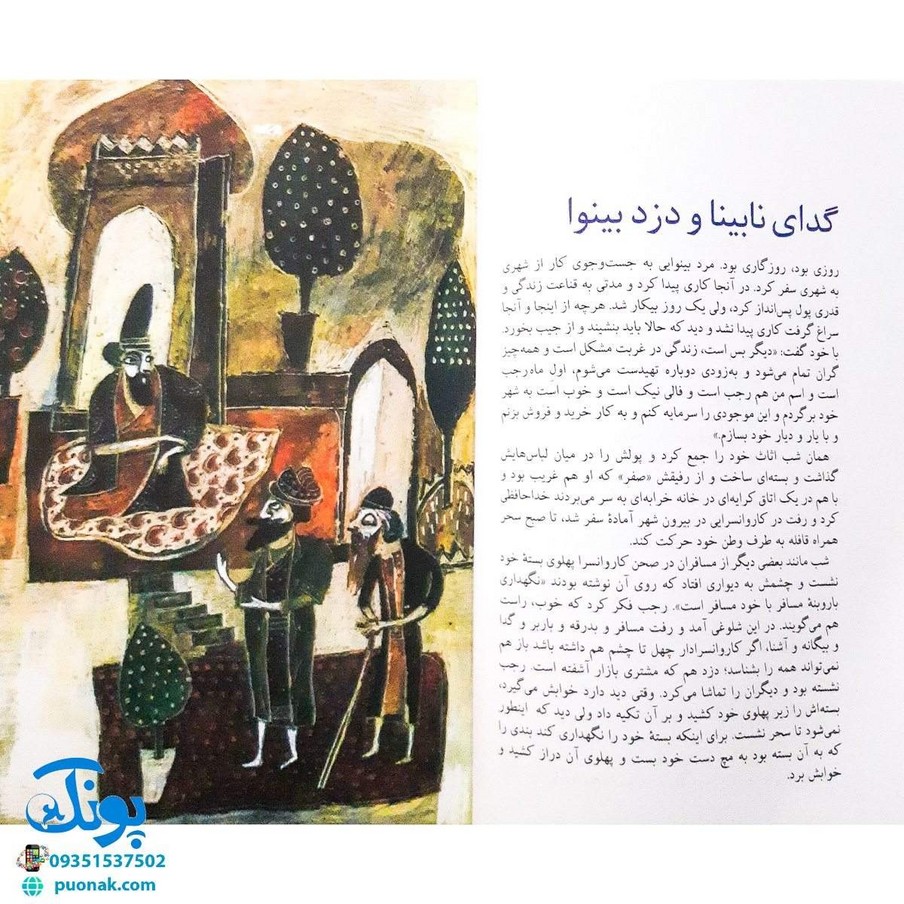 گدای نابینا و دزد بینوا
روزی بود، روزگاری بود. مرد بینوایی به جست‌وجوی کار از شهری
به شهری سفر کرد. در آنجا کاری پیدا کرد و مدتی به قناعت زندگی و
قدری پول پس‌انداز کرد، ولی یک روز بیکار شد. هرچه از اینجا و آنجا
سراغ گرفت کاری پیدا نشد و دید که حالا باید بنشیند و از جیب بخورد.
با خود گفت: «دیگر بس است، زندگی در غربت مشکل است و همه‌چیز
گران تمام می‌شود و به‌زودی دوباره تهیدست می‌شوم، اول ماه رجب
است و اسم من هم رجب است و فالی نیک است و خوب است به شهر
خود برگردم و این موجودی را سرمایه کنم و به کار خرید و فروش بزنم
و با یار و دیار خود بسازم.»
همان شب اثاث خود را جمع کرد و پولش را در میان لباس‌هایش
گذاشت و بسته‌ای ساخت و از رفیقش «صفر» که او هم غریب بود و
با هم در یک اتاق کرایه‌ای در خانه خرابه‌ای به سر می‌بردند خداحافظی
کرد و رفت در کاروانسرایی در بیرون شهر آمادهٔ سفر شد، تا صبح سحر
همراه قافله به طرف وطن خود حرکت کند.
شب مانند بعضی دیگر از مسافران در صحن کاروانسرا پهلوی بستهٔ خود
نشست و چشمش به دیواری افتاد که روی آن نوشته بودند «نگهداری
باروبنهٔ مسافر با خود مسافر است». رجب فکر کرد که خوب، راست
هم می‌گویند. در این شلوغی آمد و رفت مسافر و بدرقه و باربر و گدا
و بیگانه و آشنا، اگر کاروانسرادار چهل تا چشم هم داشته باشد باز هم
نمی‌تواند همه را بشناسد؛ دزد هم که مشتری بازار آشفته است. رجب
نشسته بود و دیگران را تماشا می‌کرد. وقتی دید دارد خوابش می‌گیرد،
بسته‌اش را زیر پهلوی خود کشید و بر آن تکیه داد ولی دید که اینطور
نمی‌شود تا سحر نشست. برای اینکه بستهٔ خود را نگهداری کند بندی را
که به آن بسته بود به مچ دست خود بست و پهلوی آن دراز کشید و
خوابش برد.
پونک
09351537502
puonak.com